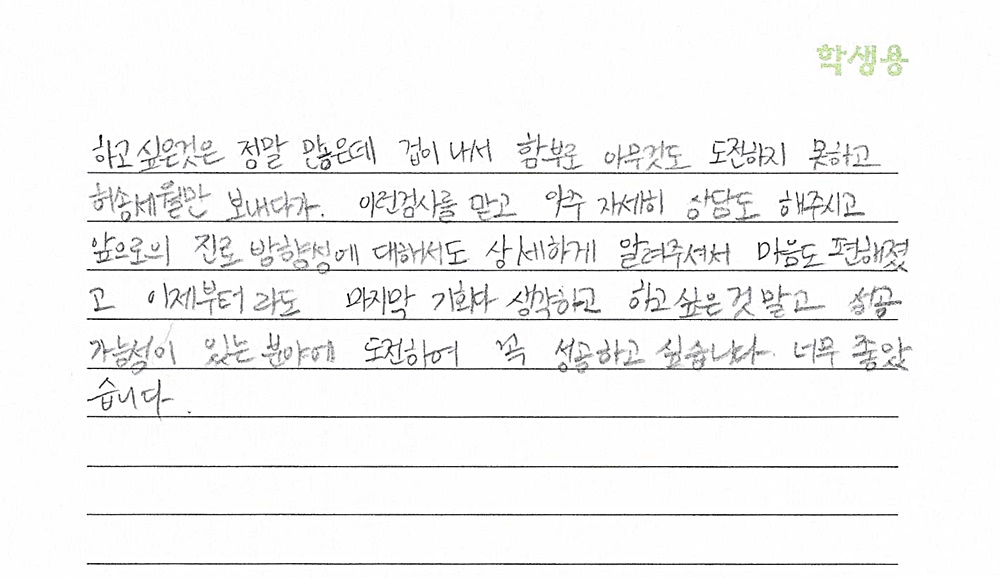 학생용
하고싶은것은 정말 많은데 겁이나서 함부로 아무것도 도전하지 못하고
허송세월만 보내다가. 이런검사를 맡고 아주 자세히 상담도 해주시고
앞으로의 진로 방향성에 대해서도 상세하게 알려주셔서 마음도 편해졌
고 이제부터라도 마지막 기회다 생각하고 하고싶은것 말고 성공
가능성이 있는 분야에 도전하여 꼭 성공하고 싶습니다. 너무 좋았
습니다.